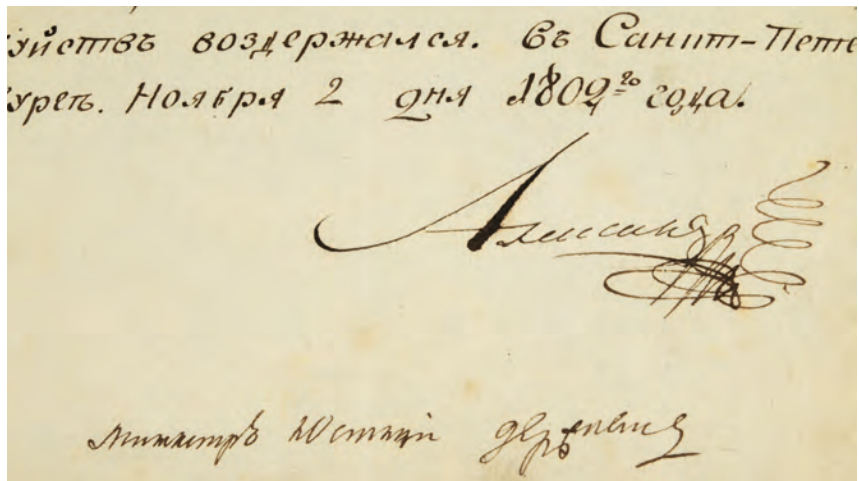 уйствъ воздержался. въ Санкт-Пете
бургѣ. Ноября 2 дня 1802го года.
Александръ
Министръ Юстиціи Державинъ